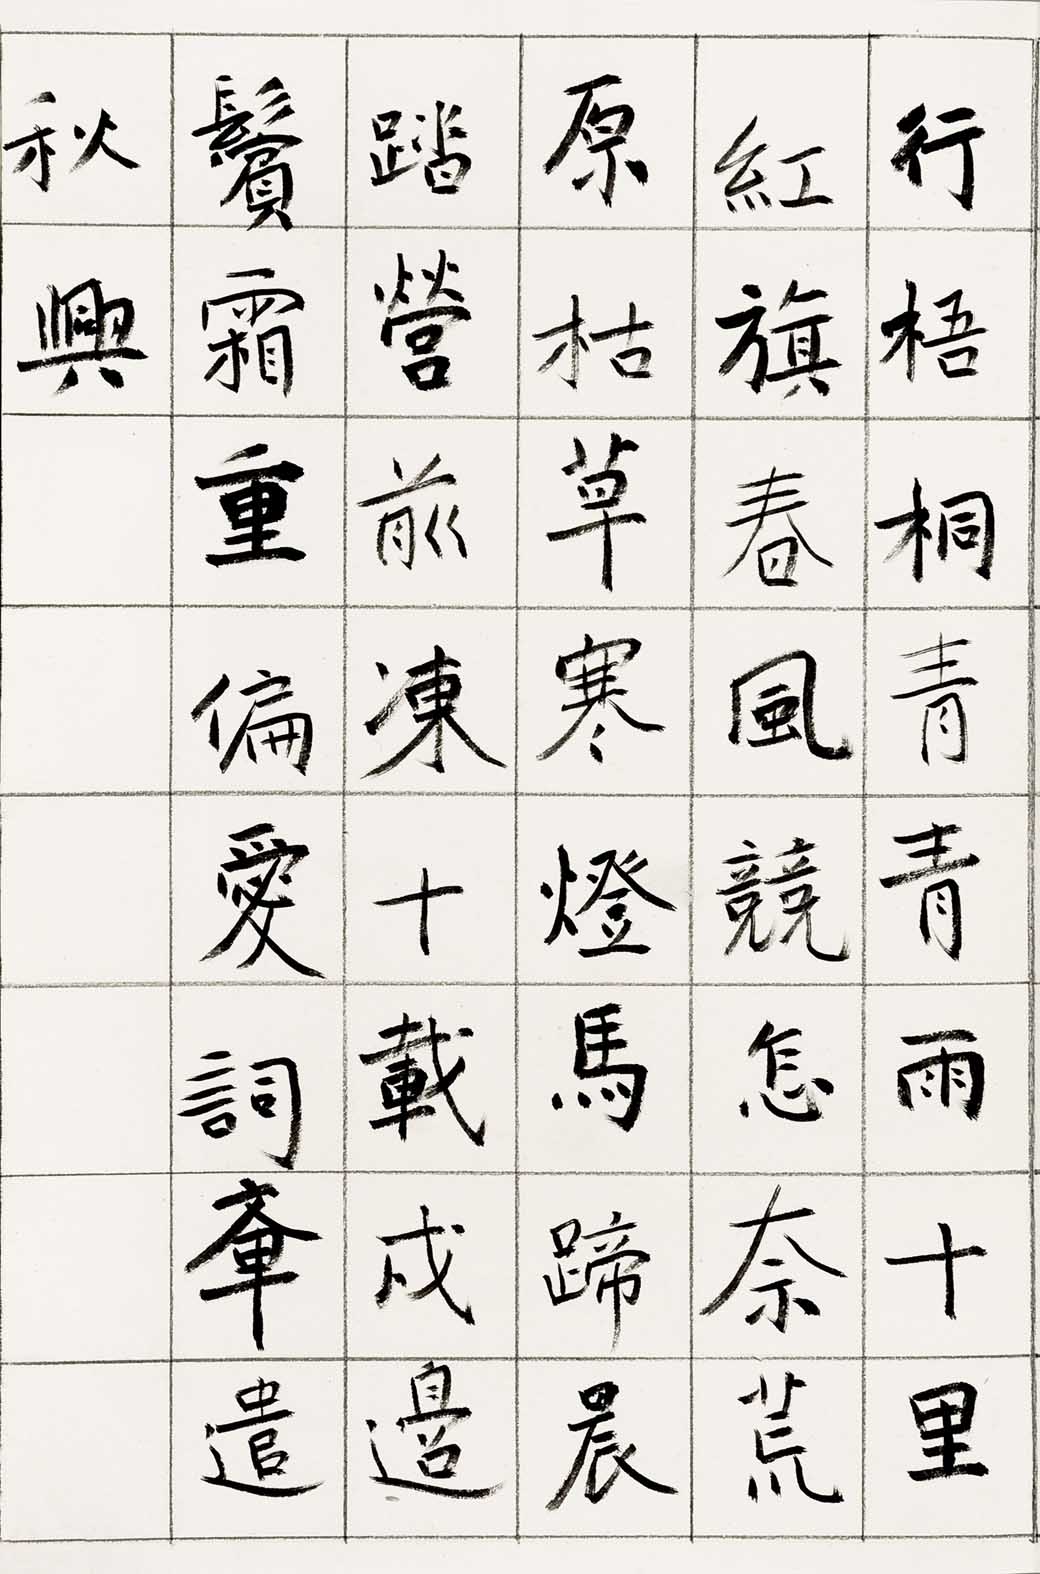 行梧桐青青雨十里
紅旗春風競怎奈荒
原枯草寒燈馬蹄晨
踏營前凍十載戍邊
鬢霜重偏愛詞章遣
秋興